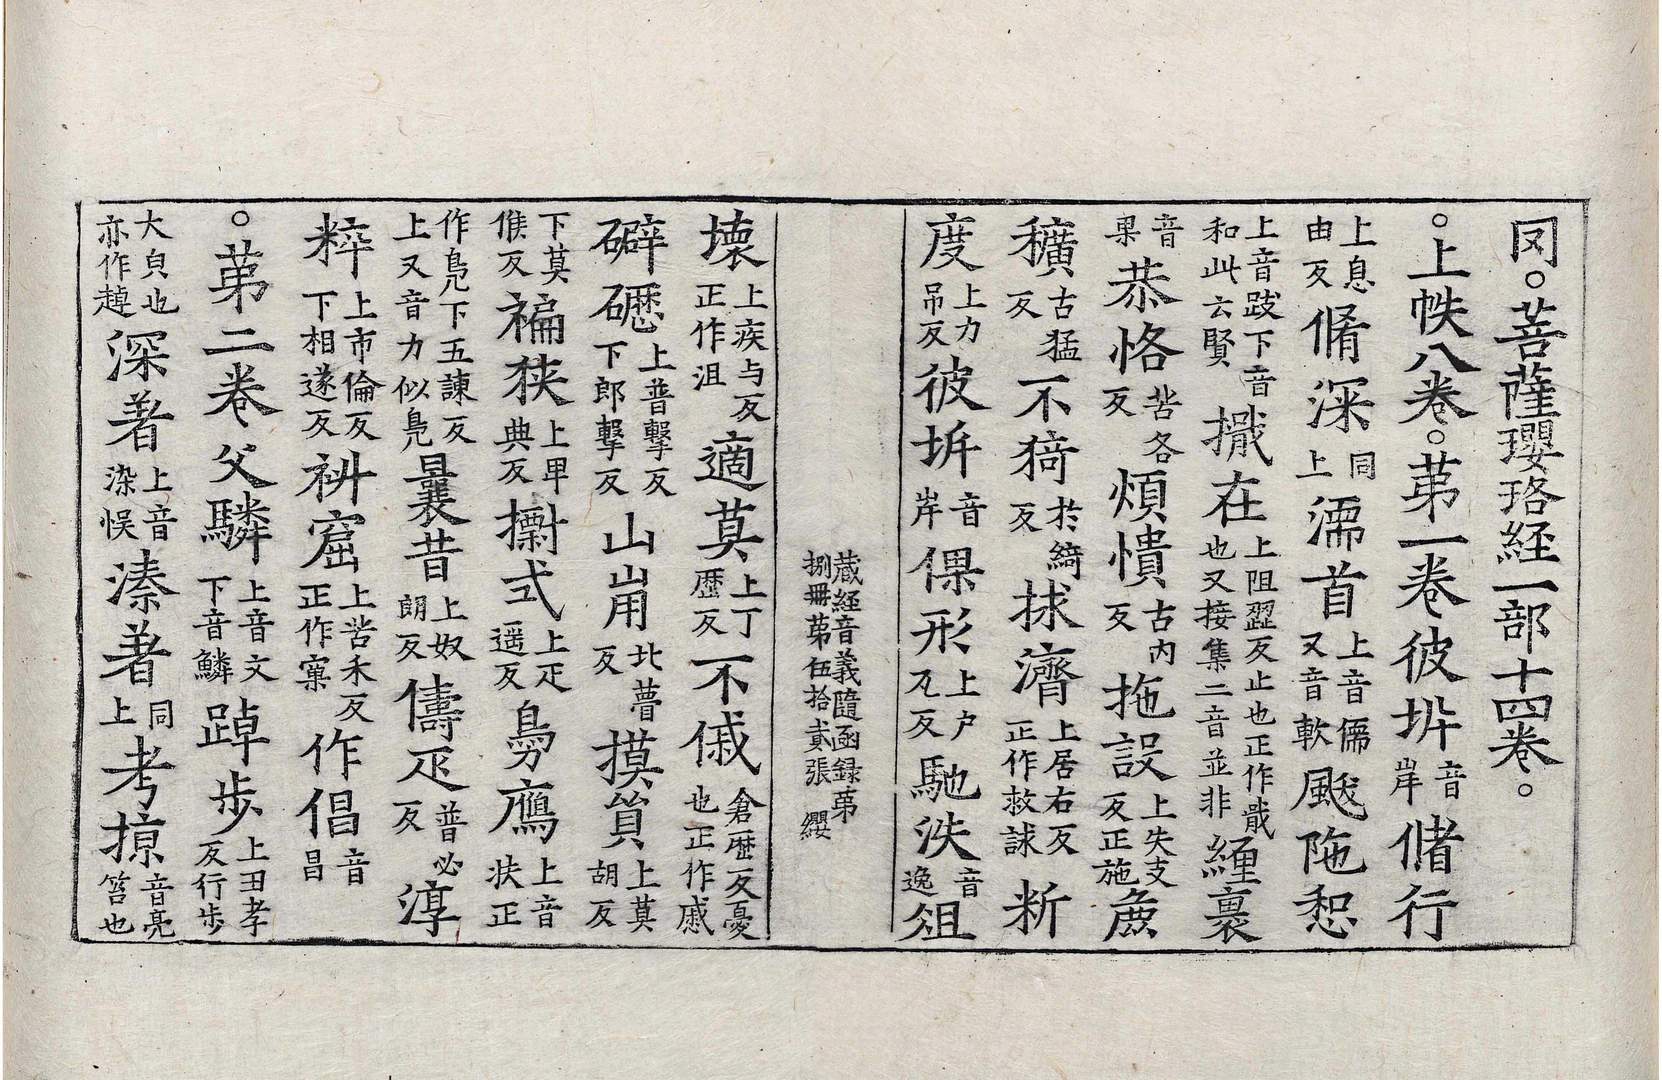 冈。菩薩瓔珞經一部十四卷。
。上帙八卷。苐一卷彼坢音岸偖行
上息由反脩深同上濡首上音儒又音軟颰陁恕
上音跂下音和此云賢擑在上阻澀反止也正作戢也又接集二音並非緾裹
音果恭恪苦各反煩憒古内反拖設上失支反正施麁
穬古猛反不猗於綺反捄濟上居右反正作救誺断
度上力吊反彼坼音岸倮形上户瓦反馳泆音逸俎
藏經音義隨函録苐捌冊苐伍拾貳張 纓
壞上疾与反正作沮適莫上丁歴反不傶倉歴反憂也正作慼
礔礰上普擊反下郎擊反山崩北瞢反摸貿上莫胡反
下莫候反褊狹上卑典反㩒式上疋遥反鳬鴈上音扶正
作鳬下五諫反上又音力似鳬曩昔上奴朗反儔疋普必反淳
粹上市倫反下相遂反㭊窟上苦禾反正作窠作倡音昌
。苐二卷父驎上音文下音鱗踔步上丑孝反行步
大皃也亦作趠深著上音深悮溱著同上考掠音亮笞也